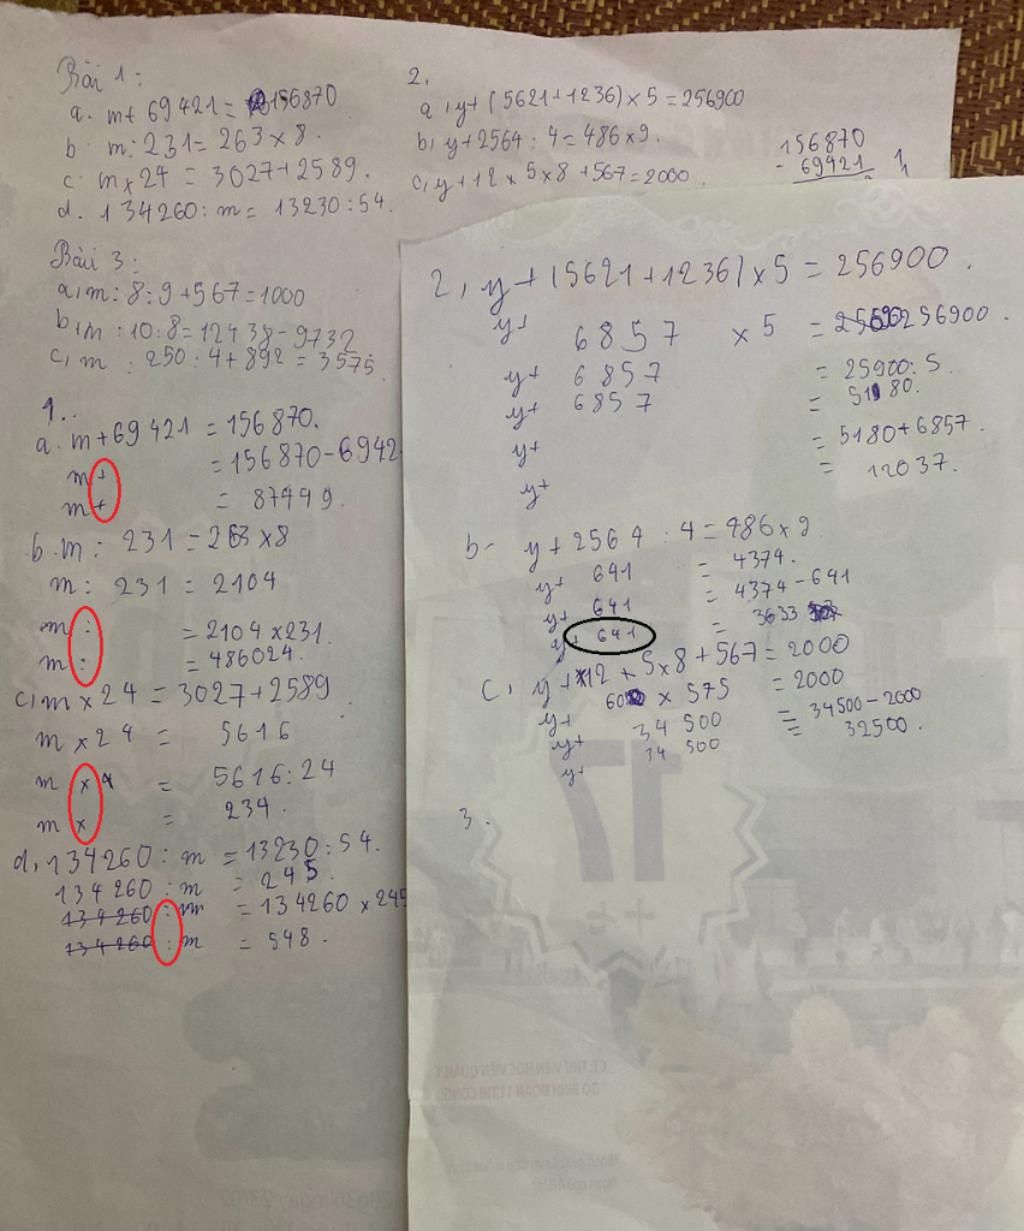 Bài 1:
a. m + 69421 = 156870
b. m : 231 = 263 x 8.
c. m x 24 = 3027 + 2589.
d. 134260 : m = 13230 : 54.
2.
a, y + (5621 + 1236) x 5 = 256900
b, y + 2564 : 4 = 486 x 9.
c, y + 12 x 5 x 8 + 567 = 2000.
156870
- 69421
Bài 3:
a, m : 8 : 9 + 567 = 1000
b, m : 10 : 8 = 12438 - 9732
c, m : 250 : 4 + 892 = 3575.
1.
a. m + 69421 = 156870.
m + = 156870 - 6942
m + = 87449.
b. m : 231 = 263 x 8
m : 231 = 2104
m : = 2104 x 231.
m : = 486024.
c, m x 24 = 3027 + 2589
m x 24 = 5616
m x = 5616 : 24
m x = 234.
d, 134260 : m = 13230 : 54.
134260 : m = 245.
134260 : m = 134260 x 245
134260 : m = 548.
2, y + (5621 + 1236) x 5 = 256900.
y + 6857 x 5 = 256900.
y + 6857 = 25900 : 5
y + 6857 = 5180.
y + = 5180 + 6857.
y + = 12037.
b- y + 2564 : 4 = 486 x 9
y + 641 = 4374.
y + 641 = 4374 - 641
y + 641 = 3633
c, y + 12 + 5 x 8 + 567 = 2000
y + 60 x 575 = 2000
y + 34500 = 34500 - 2000
y + 34500 = 32500.
3.
17